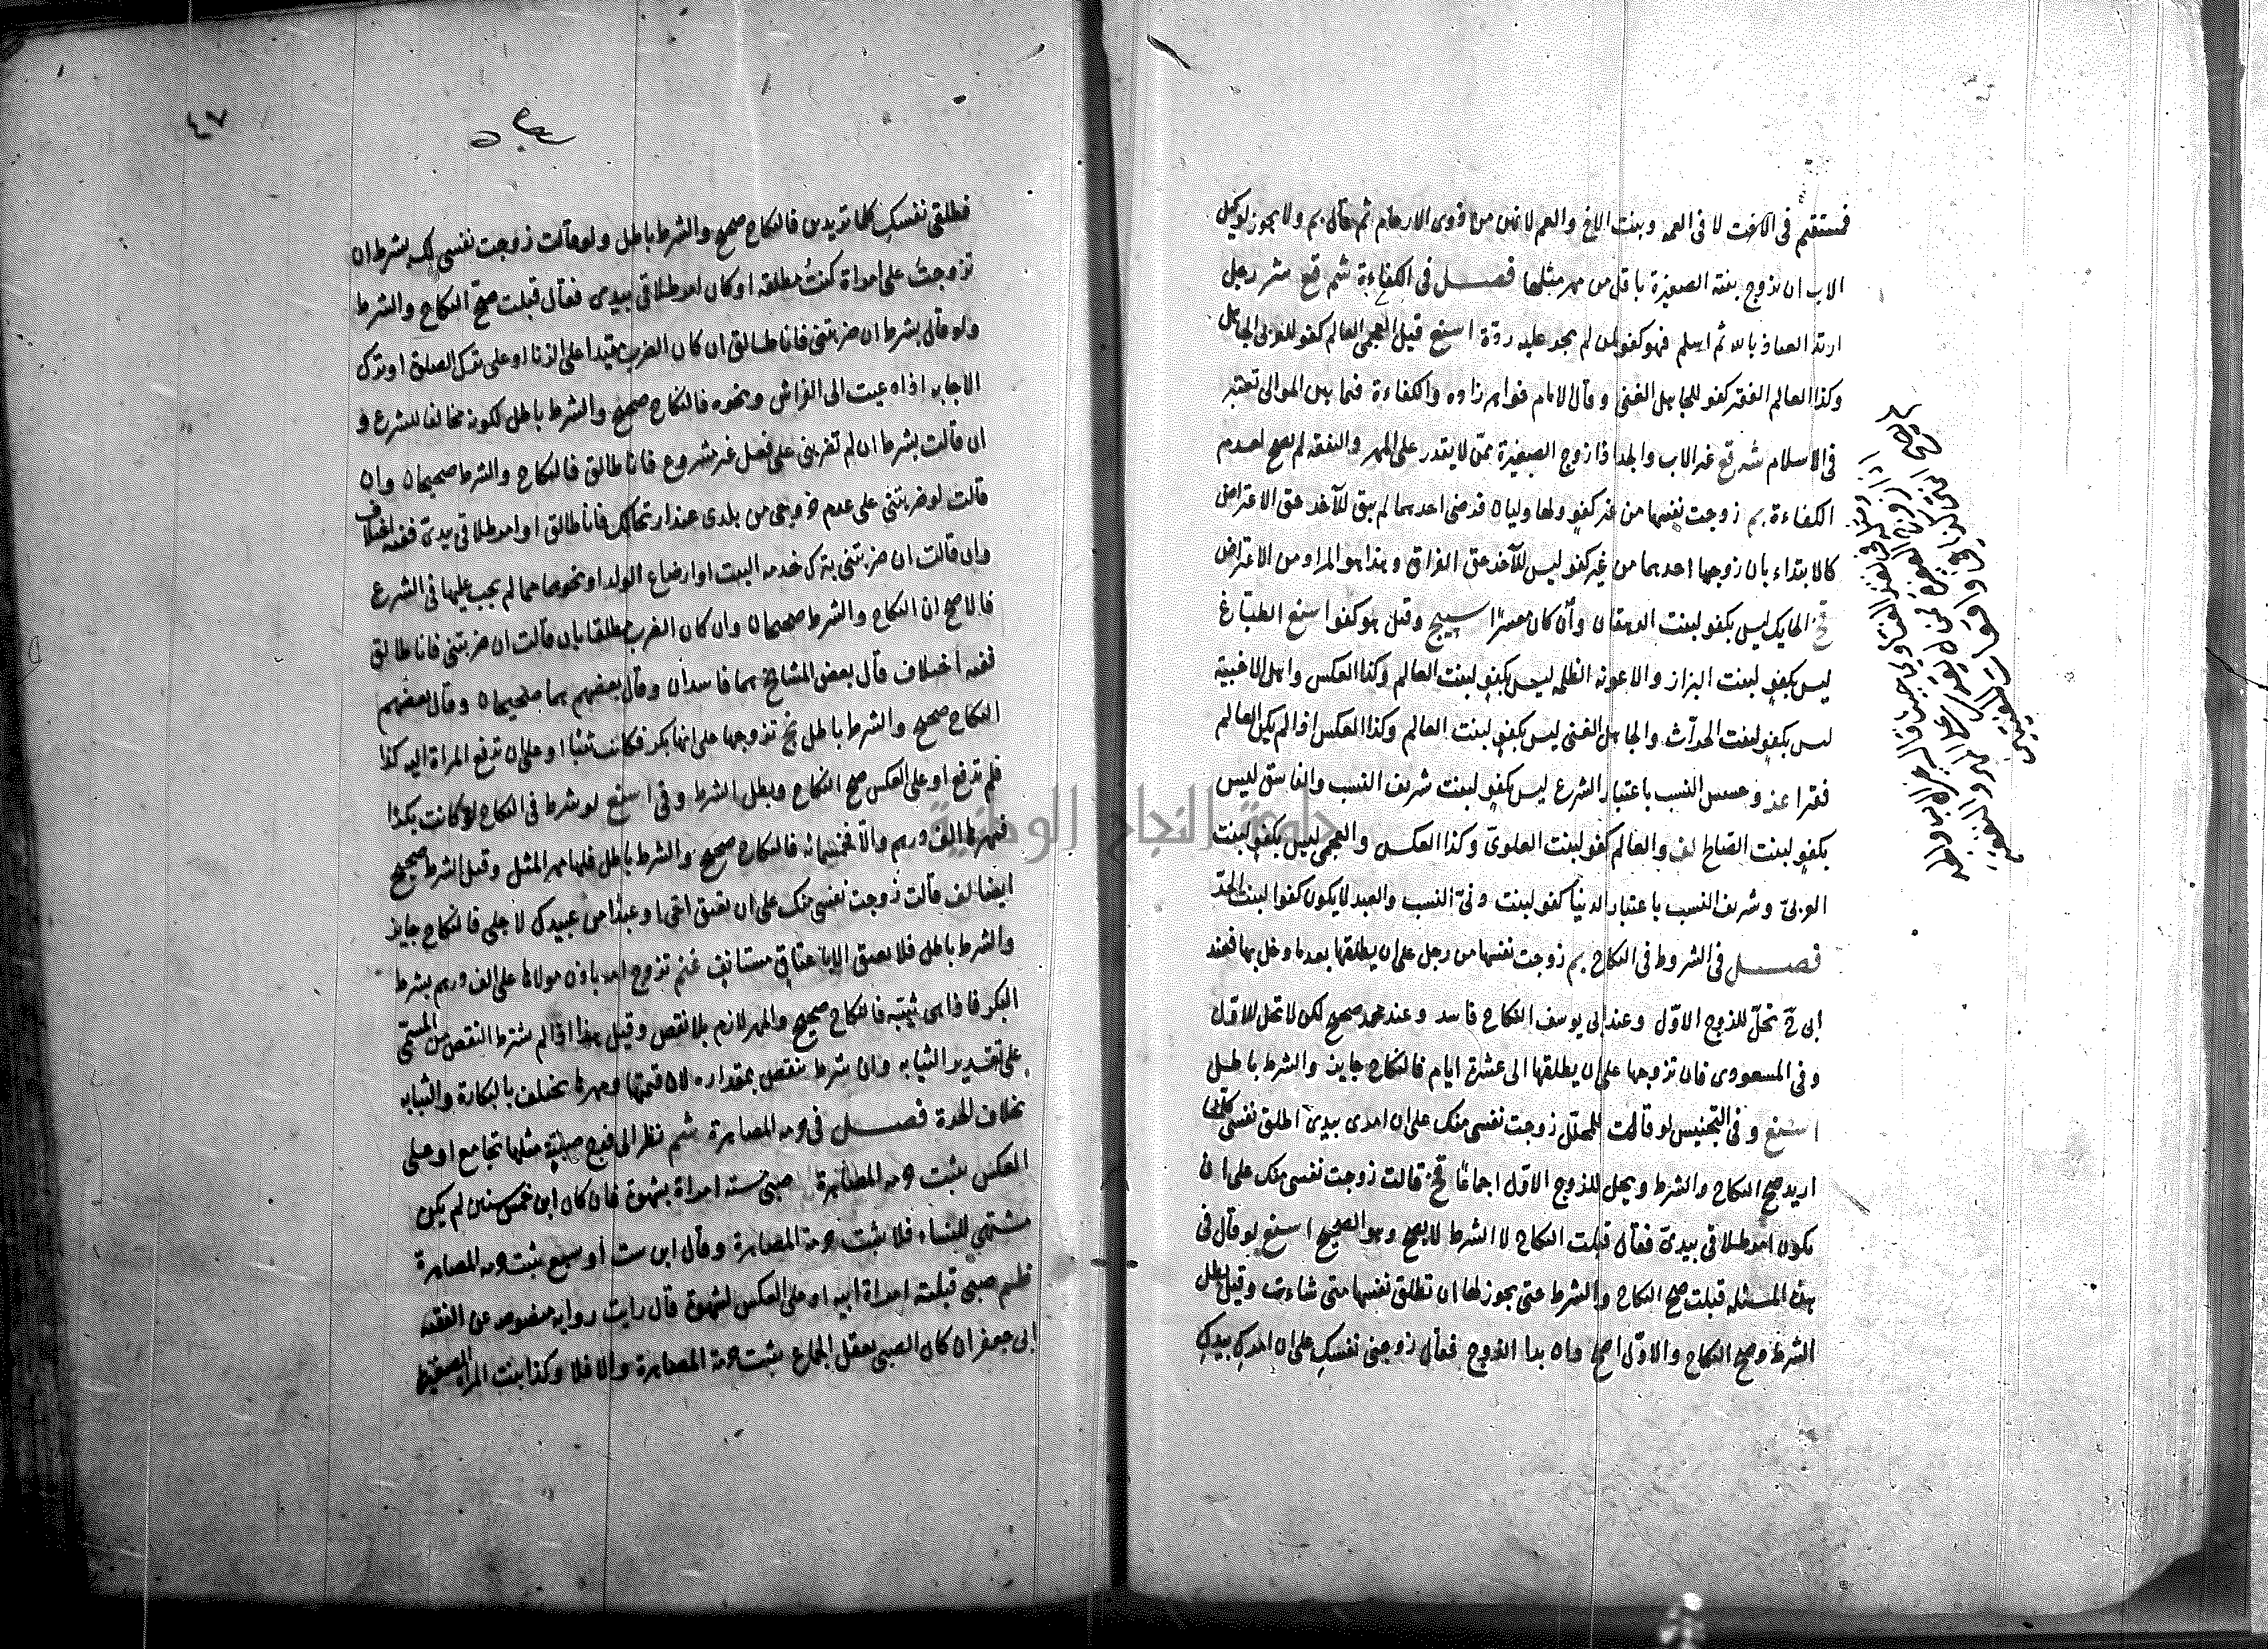 فيستقيم في الاخت لا في العمة وبنت الاخ والعم لانهن من ذوي الارحام ثم قال بم ولا يجوز لوكيل
الاب ان يزوج بنته الصغيرة باقل من مهر مثلها فصل في الكفاءة شم قع مشر رجل
ارتد العياذ بالله ثم اسلم فهو كفو لمن لم يجر عليه ردة اسنع قيل العجمي العالم كفو للعربي الجاهل
وكذا العالم الفقير كفو للجاهل الغني وقال الامام خواهرزاده والكفاءة فيما بين الموالي تعتبر
في الاسلام شه قع غير الاب والجد اذا زوج الصغيرة ممن لا يقدر على المهر والنفقة لم يصح لعدم
الكفاءة بم زوجت نفسها من غير كفو ولها وليان فرضي احدهما لم يبق للآخر حق الاعتراض
كالابتداء بان زوجها احدهما من غير كفو ليس للآخر حق الفراق وهذا هو المراد من الاعتراض
الحايك ليس بكفو لبنت الدهقان وان كان معسرا سيج وقيل هو كفو اسنع الطباغ
ليس بكفو لبنت البزاز والاعونة الظلمة ليس بكفو لبنت العالم وكذا العكس واهل الاخبية
ليس بكفو لبنت الحراث والجاهل الغني ليس بكفو لبنت العالم وكذا العكس اذا لم يكن العالم
فقيرا عذ خسيس النسب باعتبار الشرع ليس بكفو لبنت شريف النسب والفاسق ليس
بكفو لبنت الصالح لف والعالم كفو لبنت العلوي وكذا العكس والعجمي ليس بكفو لبنت
العربي وشريف النسب باعتبار الدنيا كفو لبنت دني النسب والعبد لا يكون كفوا لبنت الحر
فصل في الشروط في النكاح بم زوجت نفسها من رجل على ان يطلقها بعد ما دخل بها فعند
ابي ح تحل للزوج الاول وعند ابي يوسف النكاح فاسد وعند محمد صحيح لكن لا تحل للاول
وفي المسعودي فان تزوجها على ان يطلقها الى عشرة ايام فالنكاح جايز والشرط باطل
اسنع وفي التجنيس لو قالت للمحلل زوجت نفسي منك على ان امري بيدي اطلق نفسي كلما
اريد صح النكاح والشرط ويحل للزوج الاول اجماعا قح قالت زوجت نفسي منك على ان
يكون امر طلاقي بيدي فقال قبلت النكاح لا الشرط لا يصح وهو الصحيح اسنع لو قال في
هذه المسئلة قبلت صح النكاح والشرط حتى يجوز لها ان تطلق نفسها متى شاءت وقيل بطل
الشرط وصح النكاح والاول اصح وان بدا الزوج فقال زوجيني نفسك على ان امرك بيدك
٤٧
فطلقي نفسك كلما تريدين فالنكاح صحيح والشرط باطل ولو قالت زوجت نفسي لك بشرط ان
تزوجت على امراة كنت مطلقة او كان امر طلاقي بيدي فقال قبلت صح النكاح والشرط
ولو قال بشرط ان ضربتني فانا طالق ان كان الضرب مقيدا على الزنا او على ترك الصلوة او ترك
الاجابة اذا دعيت الى الفراش ونحوه فالنكاح صحيح والشرط باطل لكونه مخالفا للشرع و
ان قالت بشرط ان لم تضربني على فعل غير مشروع فانا طالق فالنكاح والشرط صحيحان وان
قالت لو ضربتني على عدم خروجي من بلدي عند ارتحالك فانا طالق او امر طلاقي بيدي ففيه اختلاف
وان قالت ان ضربتني بترك خدمة البيت او ارضاع الولد او نحوهما مما لم يجب عليها في الشرع
فالاصح ان النكاح والشرط صحيحان وان كان الضرب مطلقا بان قالت ان ضربتني فانا طالق
ففيه اختلاف قال بعض المشايخ هما فاسدان وقال بعضهم هما صحيحان وقال بعضهم
النكاح صحيح والشرط باطل نج تزوجها على انها بكر فكانت ثيبا او على ان تدفع المراة اليه كذا
فلم تدفع او على العكس صح النكاح وبطل الشرط وفي اسنع لو شرط في النكاح لو كانت بكذا
فمهرها الف درهم والا فخمسمائة فالنكاح صحيح والشرط باطل فلها مهر المثل وقيل الشرط صحيح
ايضا لف قالت زوجت نفسي منك على ان تعتق اخي او عبدا من عبيدك لاجلي فالنكاح جايز
والشرط باطل فلا يعتق الا باعتاق مستانف غنم تزوج امة باذن مولاها على الف درهم بشرط
البكر فاذا هي ثيبة فالنكاح صحيح والمهر لازم بلا نقص وقيل هذا اذا لم يشترط النقص من المسمى
على تقدير الثيابة وان شرط ينقص بمقداره لان قيمتها ومهرها يختلف بالبكارة والثيابة
بخلاف الحرة فصل في حرمة المصاهرة شم نظر الى فرج صبية مثلها تجامع او على
العكس يثبت حرمة المصاهرة صبي مسته امراة بشهوة فان كان ابن خمس سنين لم يكن
مشتهي للنساء فلا يثبت حرمة المصاهرة وقال ابن ست او سبع يثبت حرمة المصاهرة
ظم صبي قبلته امراة ابيه او على العكس لشهوة قال رايت رواية منصوصة عن الفقيه
ابي جعفر ان كان الصبي يعقل الجماع يثبت حرمة المصاهرة والا فلا وكذا بنت المراة الصغيرة
جامعة النجاح الوطنية